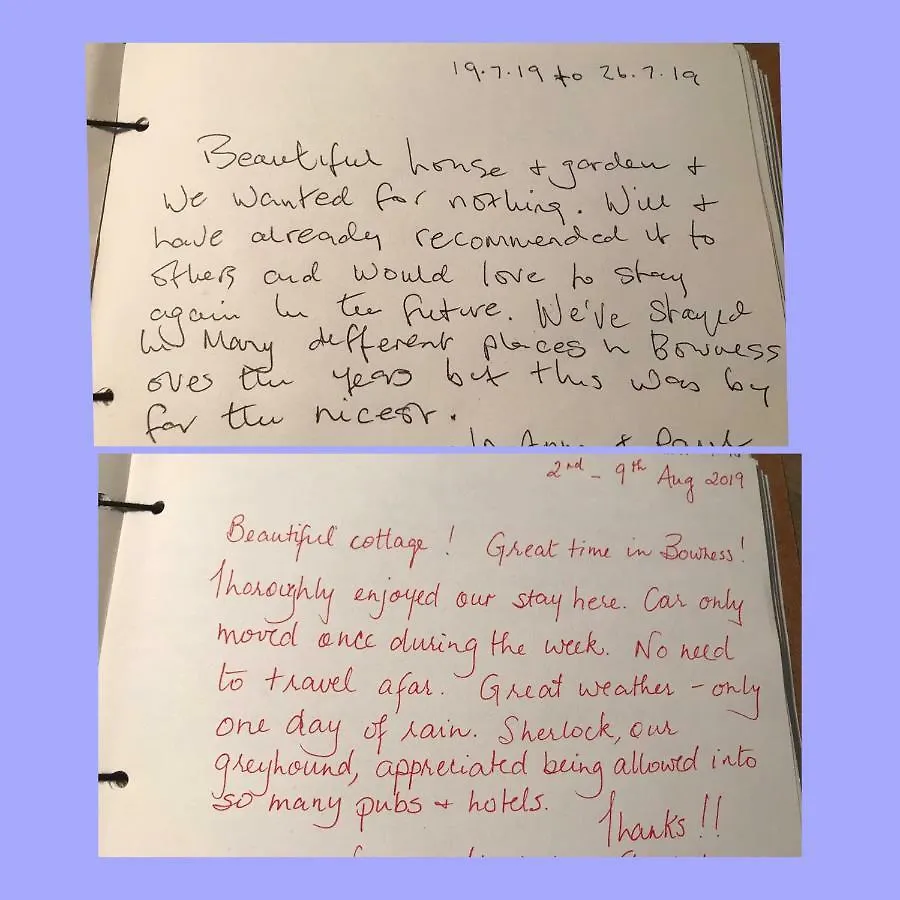 19.7.19 to 26.7.19
Beautiful house + garden +
We wanted for nothing. Will +
have already recommended it to
others and would love to stay
again in the future. We've stayed
in Many different places in Bowness
over the years but this was by
far the nicest.
2nd - 9th Aug 2019
Beautiful cottage! Great time in Bowness!
Thoroughly enjoyed our stay here. Car only
moved once during the week. No need
to travel afar. Great weather - only
one day of rain. Sherlock, our
greyhound, appreciated being allowed into
so many pubs + hotels.
Thanks!!